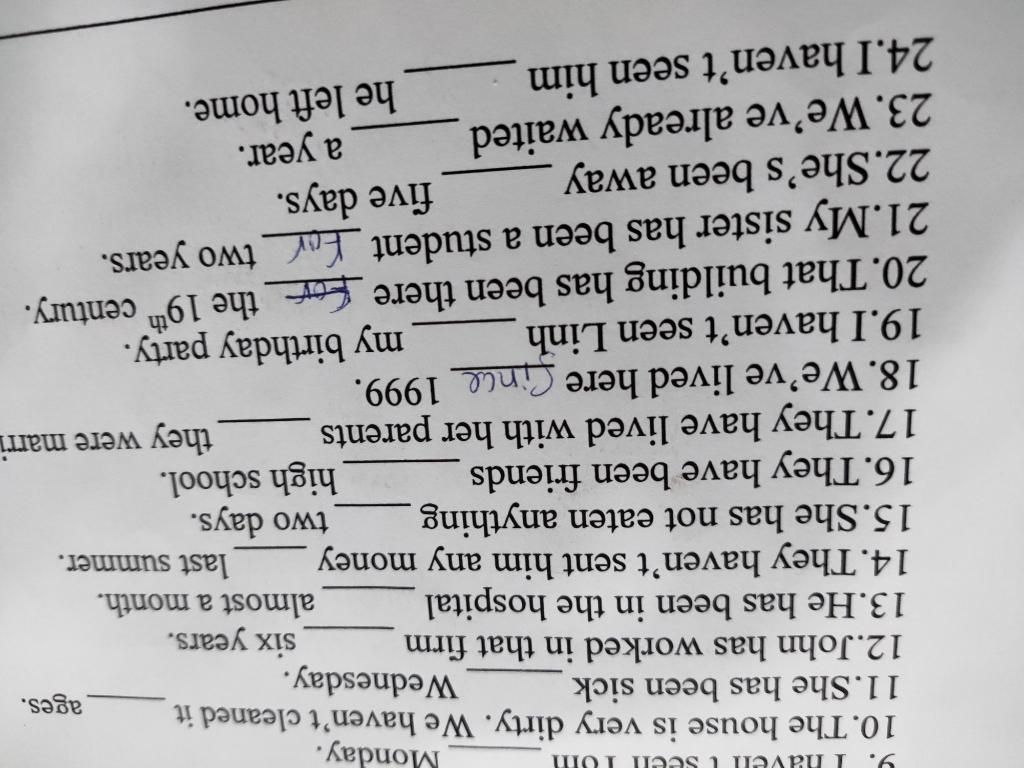 9. I haven't seen Tom ______ Monday.
10. The house is very dirty. We haven't cleaned it ______ ages.
11. She has been sick ______ Wednesday.
12. John has worked in that firm ______ six years.
13. He has been in the hospital ______ almost a month.
14. They haven't sent him any money ______ last summer.
15. She has not eaten anything ______ two days.
16. They have been friends ______ high school.
17. They have lived with her parents ______ they were marri
18. We've lived here Since 1999.
19. I haven't seen Linh ______ my birthday party.
20. That building has been there for the 19th century.
21. My sister has been a student For two years.
22. She's been away ______ five days.
23. We've already waited ______ a year.
24. I haven't seen him ______ he left home.